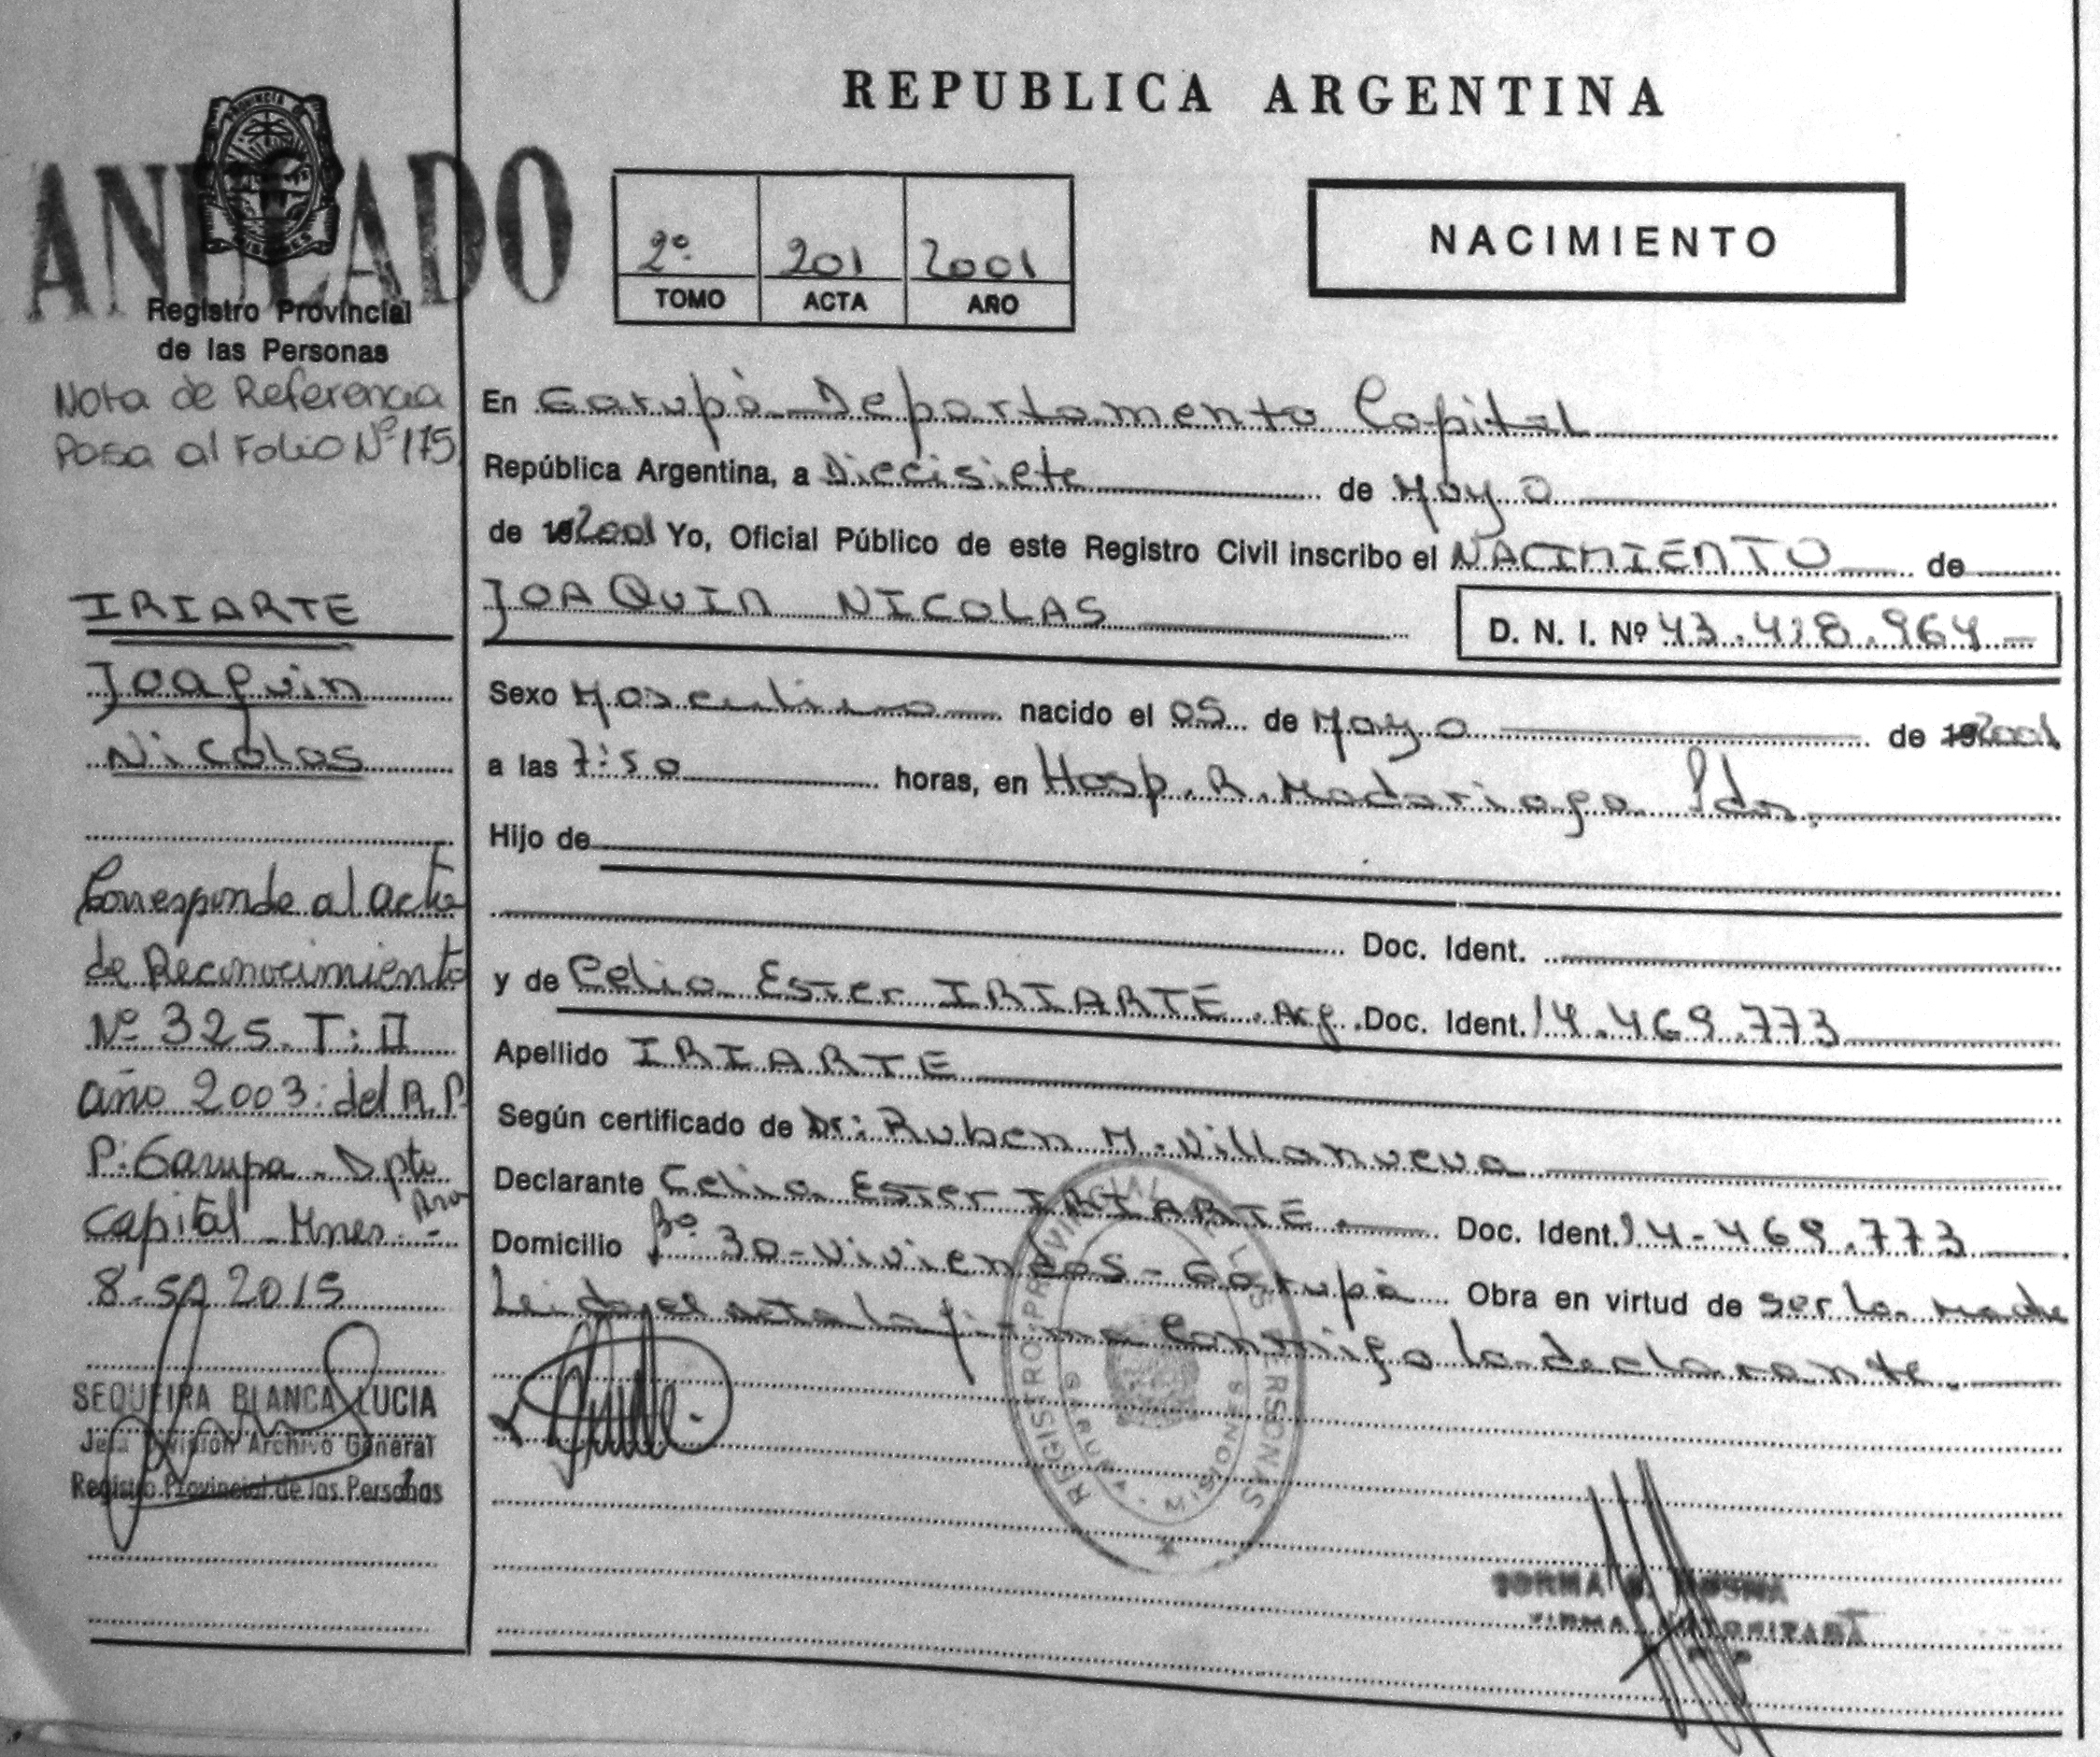 REPUBLICA ARGENTINA
ANULADO
2º 201 2001
TOMO ACTA AÑO
NACIMIENTO
Registro Provincial
de las Personas
Nota de Referencia
Pasa al Folio Nº 175
IRIARTE
Joaquin
Nicolas
Corresponde al acta
de Reconocimiento
Nº 325. T: II
año 2003: del R.P.
P: Garupa - Dpto
Capital Mnes.-
8-SA 2015
SEQUEIRA BLANCA LUCIA
Jefa División Archivo General
Registro Provincial de las Personas
En Garupà Departamento Capital
República Argentina, a Diecisiete de Mayo
de 192001 Yo, Oficial Público de este Registro Civil inscribo el NACIMIENTO de
JOAQUIN NICOLAS D. N. I. Nº 43.428.964
Sexo Masculino nacido el 05 de Mayo de 192001
a las 7:50 horas, en Hosp. R. Madariaga Pdas.
Hijo de
Doc. Ident.
y de Celia Ester IRIARTE. Arg. Doc. Ident. 14.469.773
Apellido IRIARTE
Según certificado de Dr: Ruben M. Villanueva
Declarante Celia Ester IRIARTE. Doc. Ident. 14-469.773
Domicilio Bº 30-viviendas-Garupà Obra en virtud de ser la Madre
Leida el acta la firma Conmigo la declarante.
REGISTRO PROVINCIAL DE LAS PERSONAS
GARUPA - MISIONES
FIRMA AUTORIZADA